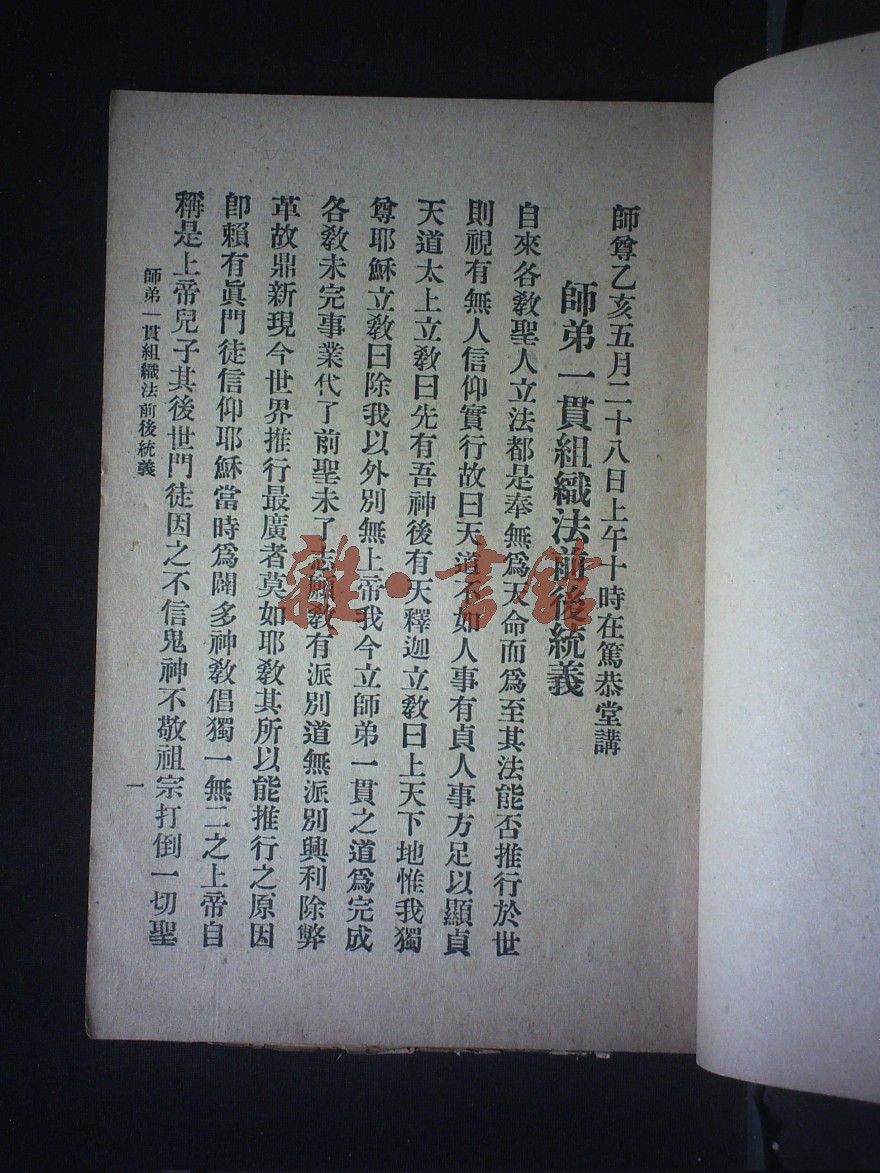 師尊乙亥五月二十八日上午十時在篤恭堂講
師弟一貫組織法前後統義
自來各教聖人立法都是奉無爲天命而爲至其法能否推行於世
則視有無人信仰實行故曰天道不如人事有貞人事方足以顯貞
天道太上立教曰先有吾神後有天釋迦立教曰上天下地惟我獨
尊耶穌立教曰除我以外別無上帝我今立師弟一貫之道爲完成
各教未完事業代了前聖未了志願教有派別道無派別興利除弊
革故鼎新現今世界推行最廣者莫如耶教其所以能推行之原因
卽賴有眞門徒信仰耶穌當時爲闢多神教倡獨一無二之上帝自
稱是上帝兒子其後世門徒因之不信鬼神不敬祖宗打倒一切聖
師弟一貫組織法前後統義
一
雜·書館